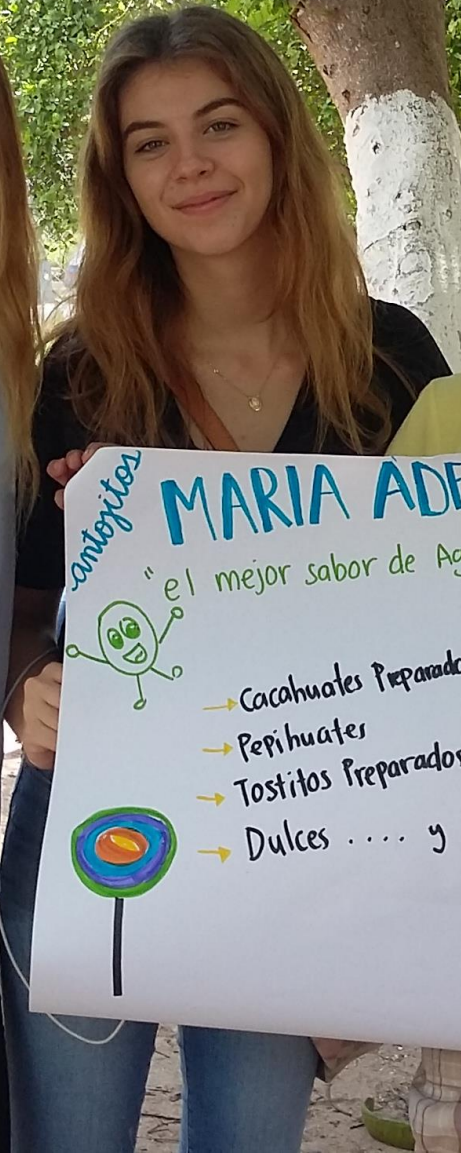 antojitos
MARIA ADE
"el mejor sabor de Ag
→ Cacahuates Preparado
→ Pepihuates
→ Tostitos Preparados
→ Dulces .... y